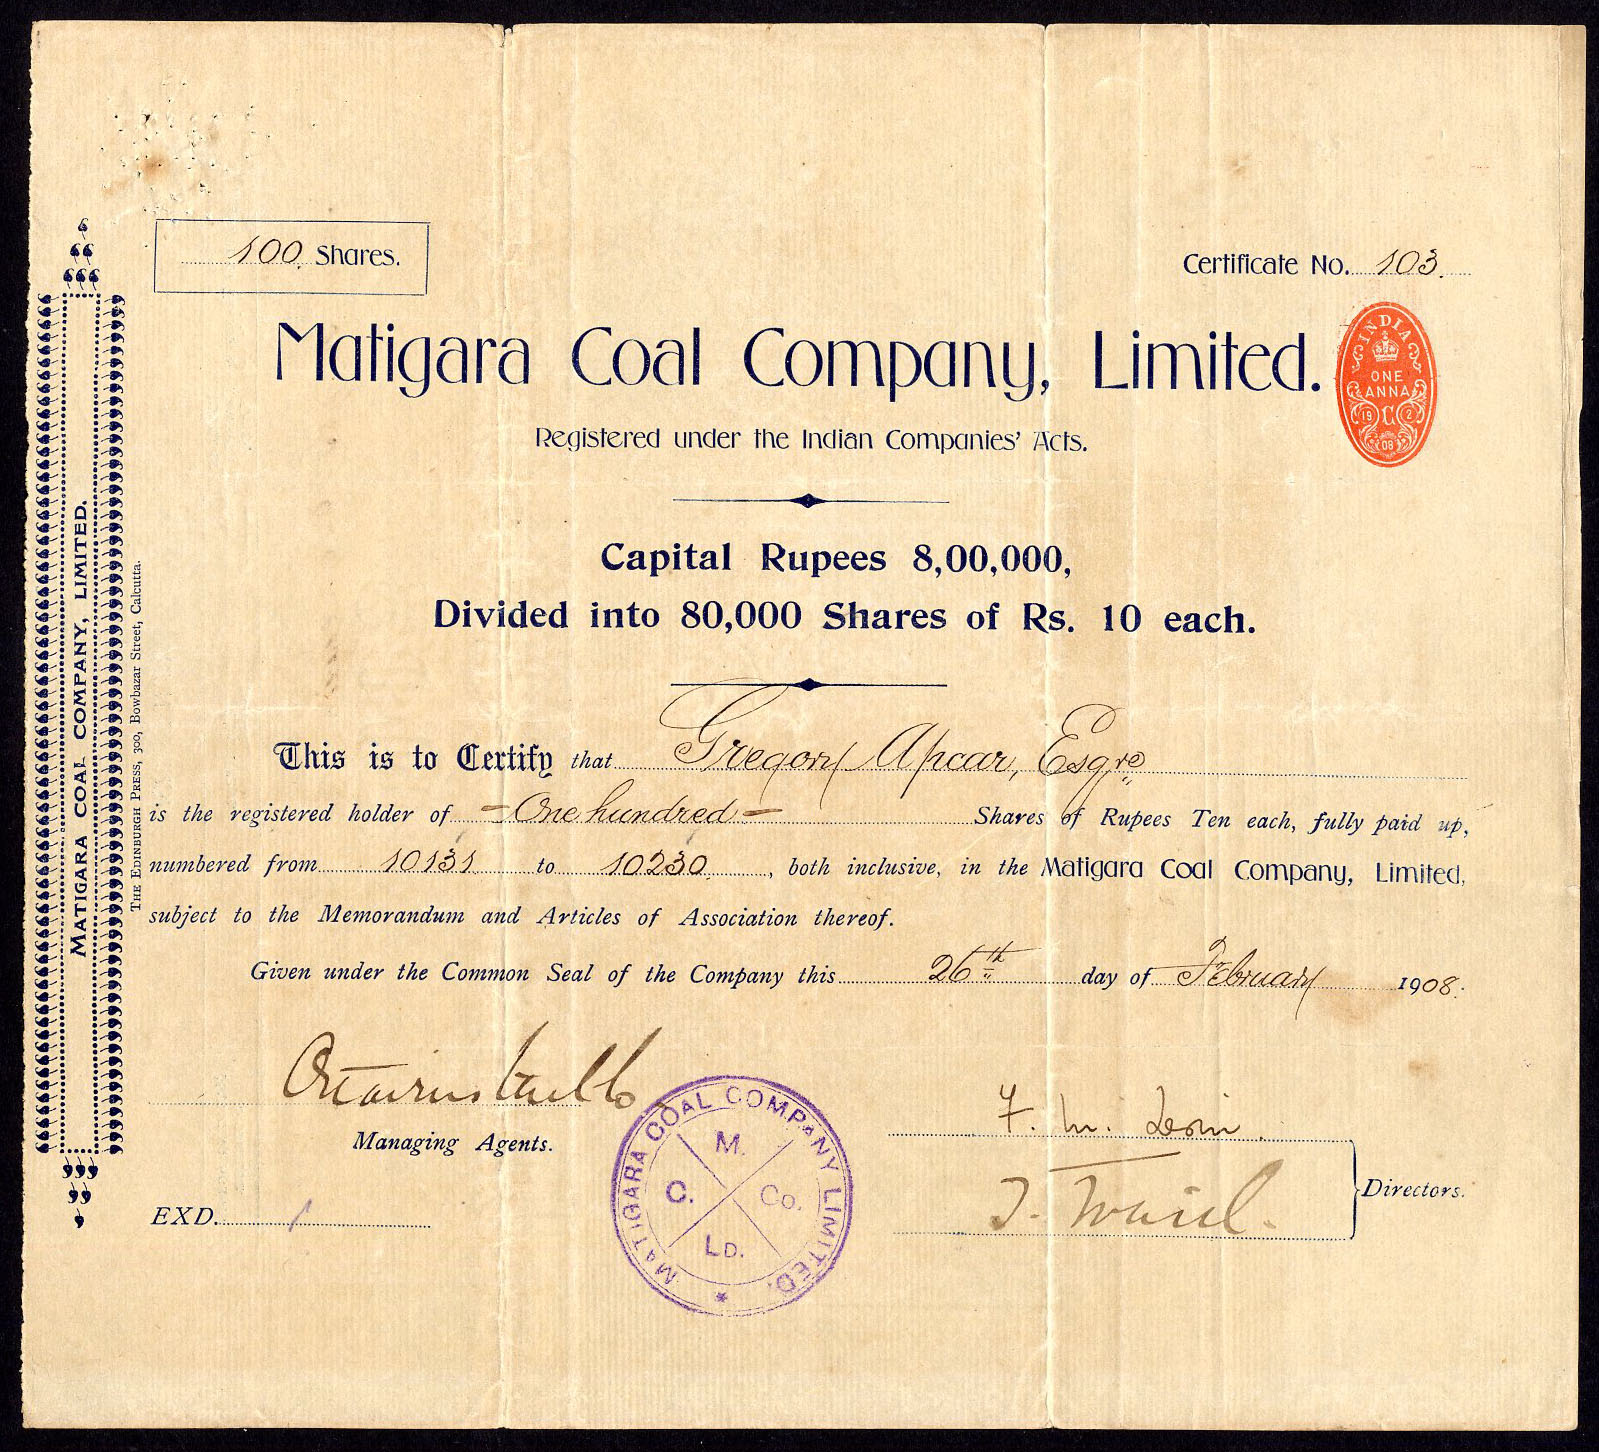 100 Shares.
Certificate No. 103.
Matigara Coal Company, Limited.
INDIA
ONE
ANNA
19 C 2
08
Registered under the Indian Companies' Acts.
Capital Rupees 8,00,000,
Divided into 80,000 Shares of Rs. 10 each.
This is to Certify that Gregory Apcar, Esqre
is the registered holder of - One hundred - Shares of Rupees Ten each, fully paid up,
numbered from 10131 to 10230, both inclusive, in the Matigara Coal Company, Limited,
subject to the Memorandum and Articles of Association thereof.
Given under the Common Seal of the Company this 26th day of February 1908.
Managing Agents.
F. M.
Directors.
EXD.
MATIGARA COAL COMPANY LIMITED.
M.
C. Co.
LD.
MATIGARA COAL COMPANY, LIMITED.
THE EDINBURGH PRESS, 300, Bowbazar Street, Calcutta.